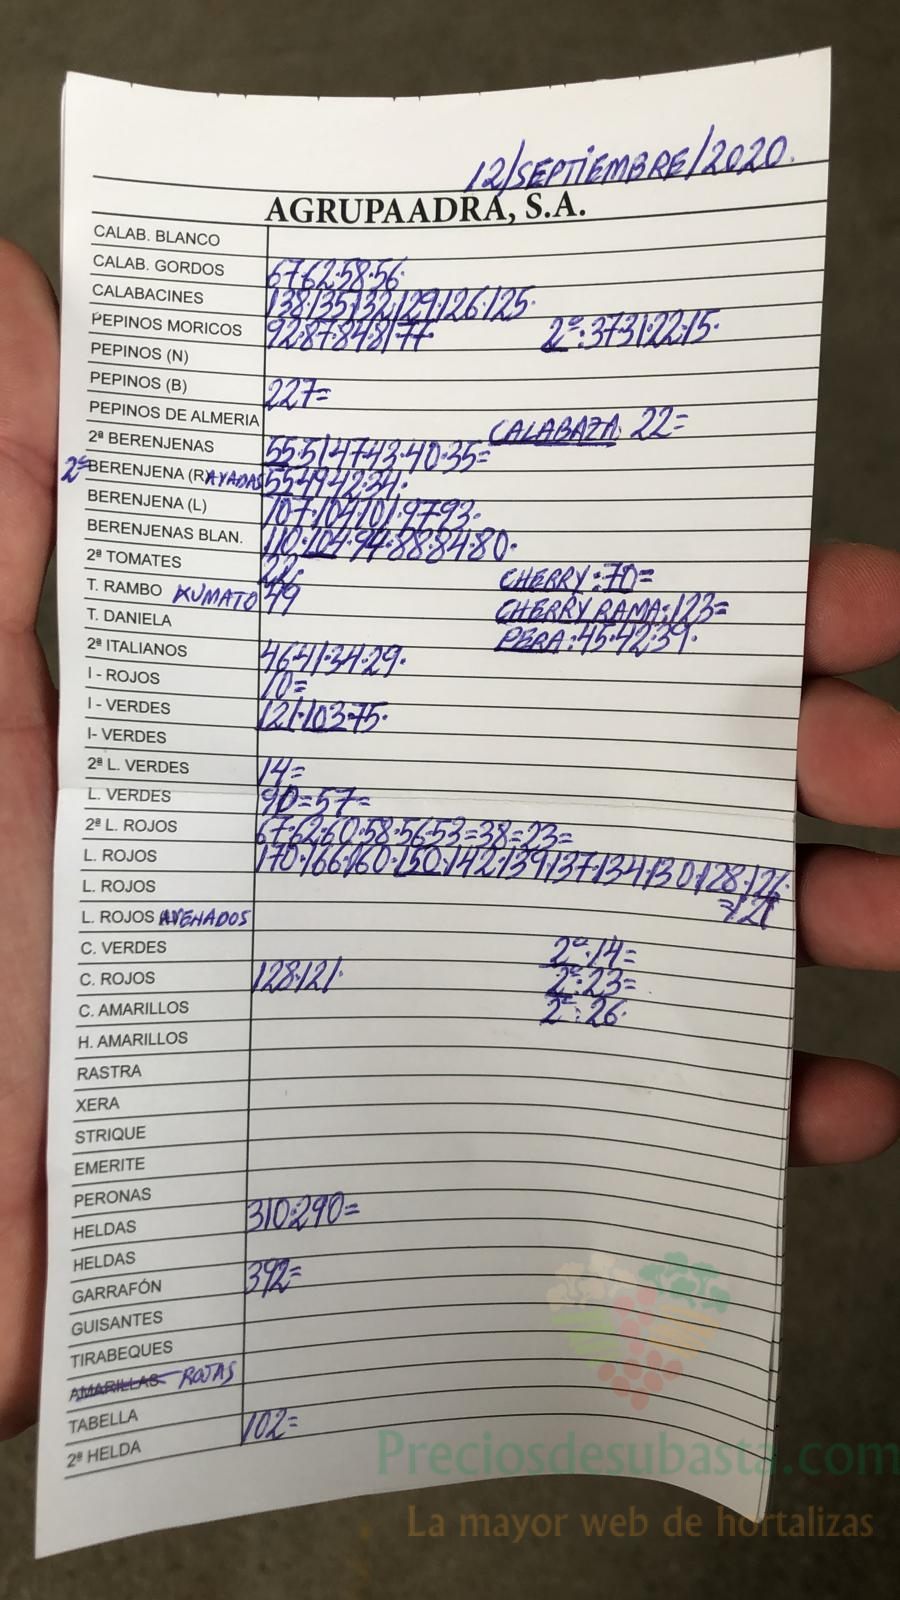 12/SEPTIEMBRE/2020.
AGRUPAADRA, S.A.
CALAB. BLANCO
CALAB. GORDOS 67·62·58·56·
CALABACINES 138·135·132·129·126·125·
PEPINOS MORICOS 92·87·84·81·77· 2ª:37·31·22·15·
PEPINOS (N)
PEPINOS (B) 227=
PEPINOS DE ALMERIA CALABAZA: 22=
2ª BERENJENAS 55·51·47·43·40·35=
2ª BERENJENA (RAYADAS 55·49·42·34·
BERENJENA (L) 107·104·101·97·93·
BERENJENAS BLAN. 110·104·94·88·84·80·
2ª TOMATES 22· CHERRY:70=
T. RAMBO KUMATO 49 CHERRY RAMA:123=
T. DANIELA PERA:45·42·39·
2ª ITALIANOS 46·41·34·29·
I - ROJOS 10=
I - VERDES 121·103·75·
I- VERDES
2ª L. VERDES 14=
L. VERDES 90=57=
2ª L. ROJOS 67·62·60·58·56·53=38=23=
L. ROJOS 170·166·160·150·142·139·137·134·130·128·126·
L. ROJOS =121
L. ROJOS AVENADOS
C. VERDES 2ª:14=
C. ROJOS 128·121· 2ª:23=
C. AMARILLOS 2ª:26·
H. AMARILLOS
RASTRA
XERA
STRIQUE
EMERITE
PERONAS
HELDAS 310·290=
HELDAS
GARRAFÓN 392=
GUISANTES
TIRABEQUES
AMARILLAS ROJAS
TABELLA
2ª HELDA 102=
Preciosdesubasta.com
La mayor web de hortalizas